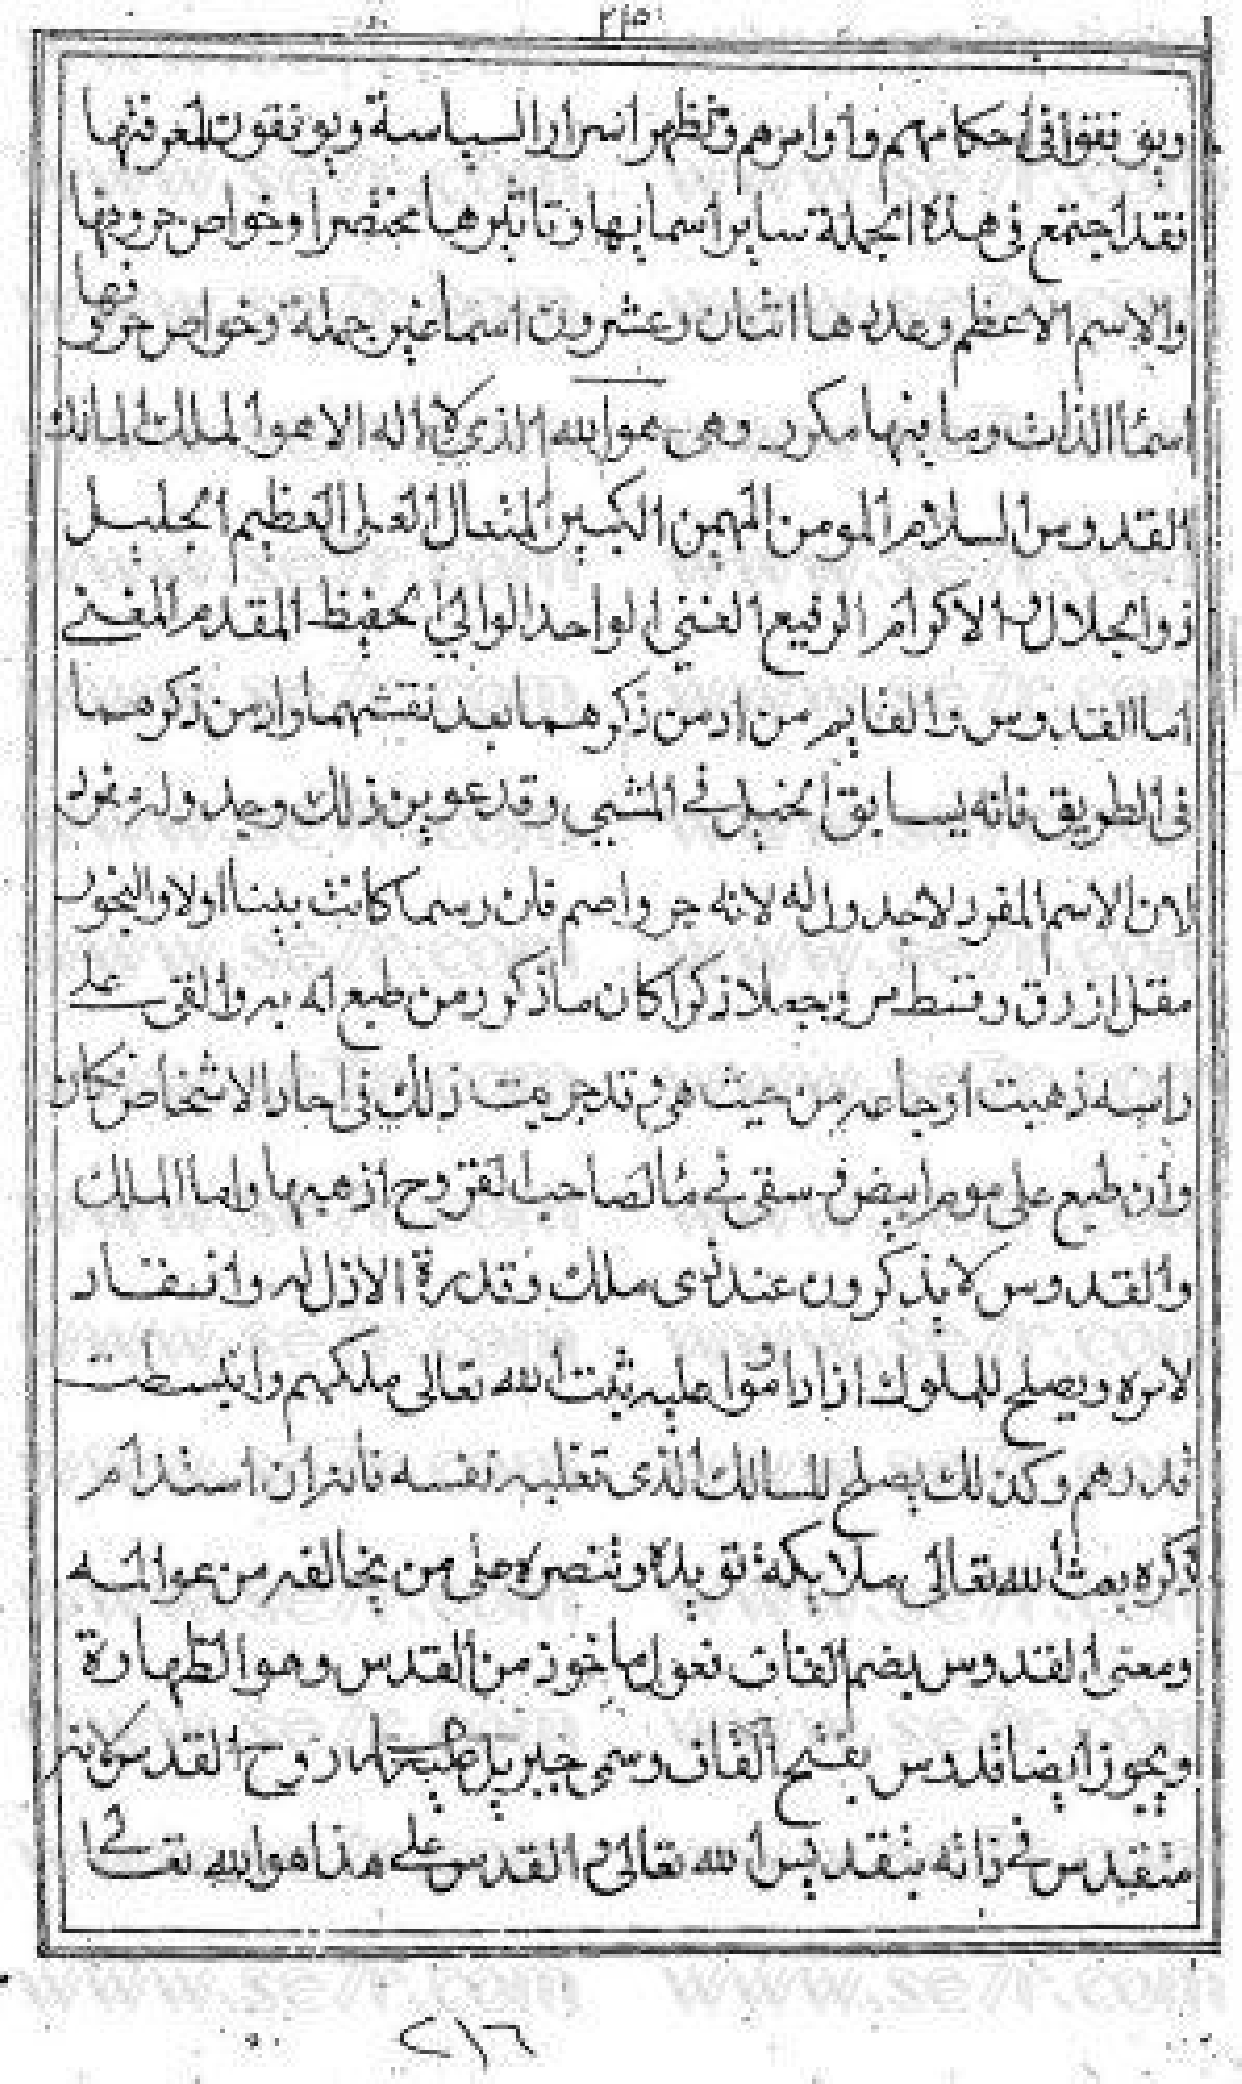 ٢١٥
ويوفقوا في احكامهم واوامرهم وتظهر اسرار السياسة ويوفقون لمعرفتها
فقد اجتمع في هذه الجملة ساير اسمايها وتاثيرها مختصرا وخواص حروفها
والاسم الاعظم وعددها اثنان وعشرون اسما غير جملة وخواص حروفها
اسما الذات وما فيها مكرر وهي هو الله الذي لا اله الا هو الملك المالك
القدوس السلام المومن المهيمن الكبير المتعال العلي العظيم الجليل
ذوالجلال والاكرام الرفيع الغني الواحد الوالي الحفيظ المقدم المغني
اما القدوس والقايم من ادمن ذكرهما بعد نقشهما وادمن ذكرهما
في الطريق فانه يسابق الخيل في المشي وقد عوين ذلك وجدوله
لان الاسم المفرد لا جدول له لانه فان رسما كانت اولا والبخور
مقل ازرق ويجعلا ذكرا كان ما ذكر ومن طبع والقي على
راسه ذهبت اوجاعه من حيث هو وقد جربت ذلك في احاد الاشخاص فكان
وان طبع على موم ابيض وسقي في ما لصاحب القروح اذهبها واما الملك
والقدوس لا يذكرون عند ذي ملك وقدرة الا ذل له وانقاد
لامره ويصلح للملوك اذا داموا عليه ثبت الله تعالى ملكهم وانبسطت
قدرهم وكذلك يصلح للسالك الذي تغلبه نفسه فانه ان استدام
ذكره بعث الله تعالى ملايكة تويده وتنصره على من يخالفه من عوالمه
ومعنى القدوس بضم القاف فعول ماخوذ من القدس وهو الطهارة
ويجوز ايضا قدوس بفتح القاف وسمي جبريل عليه السلام روح القدس لانه
متقدس في ذاته بتقديس الله تعالى القدس على هذا هو الله تعالى
٢١٦
www.se7r.com www.se7r.com